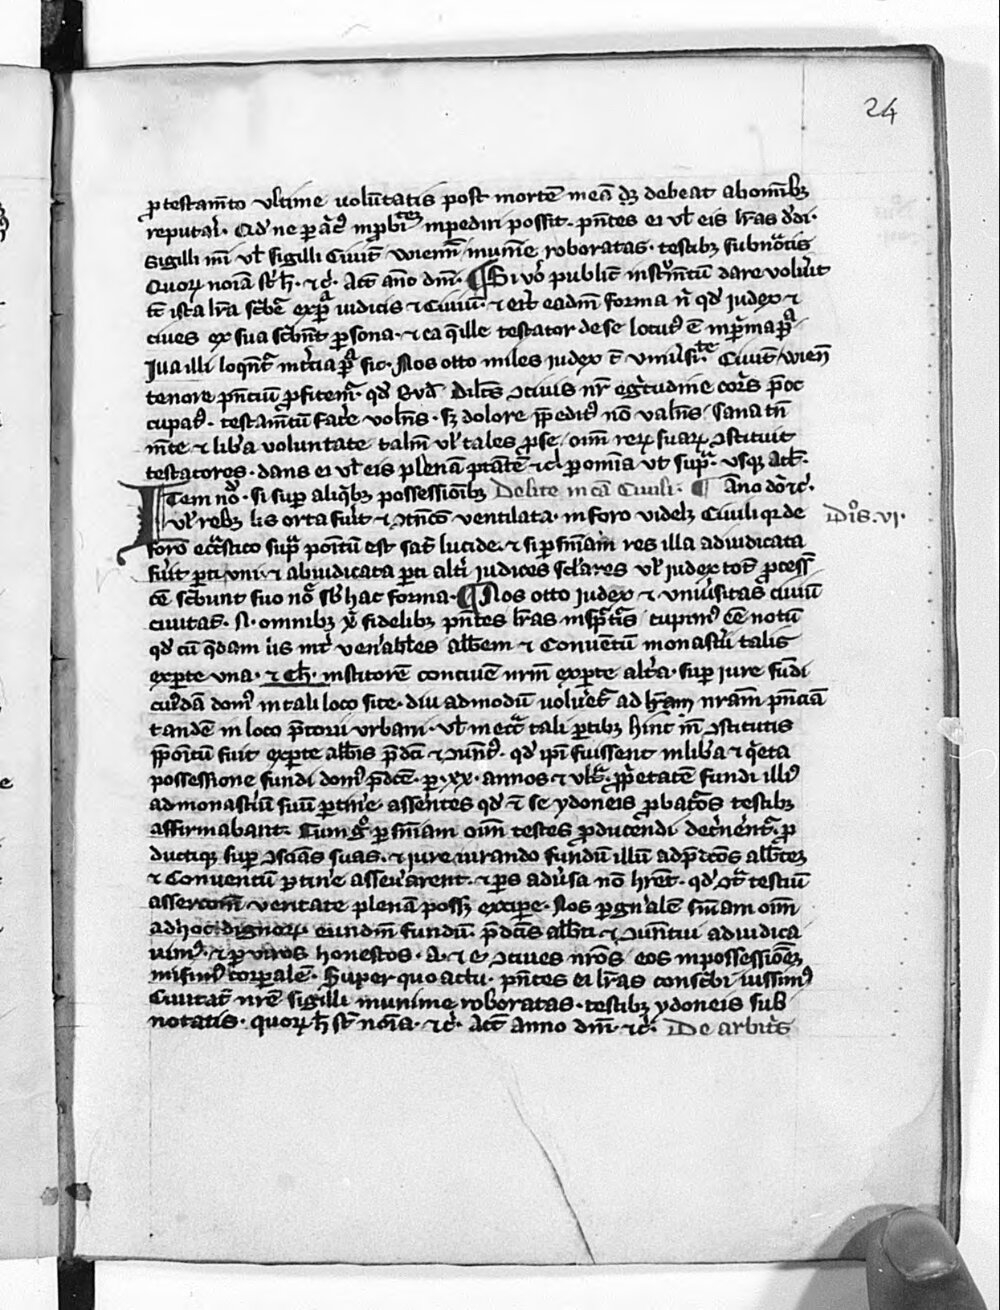 24
p testam̅to vltime uolu̅tatis post morte̅ mea̅ dʒ debeat ab omībʒ
reputari. Qd' ne per impediri possit. pn̅tes ei vl' eis lr̅as dedi.
sigilli mei vl' sigilli Ciuit̅ wienn̅ munīe roboratas. testibʒ subno̅tis
Quorꝝ noīa st̅ h̅. ⁊c̅. Act̅ an̅o dn̅i. ¶ Si vo̊ public̅ instrum̅tu̅ dare volu̅it
t̅c ista lr̅a scbe̅ ex p̅a iudicis ⁊ Ciuiu̅. ⁊ erit eadem̅ forma n̅ qd' judex ⁊
ciues ex sua scbe̅nt p̱sona. ⁊ ea que ille testator de se locut9 e̅ in p̅ma p̅a
loque̅t^r in t̅cia p̅a sic. Nos otto miles judex ⁊ vniu̅si^tas Ciuit̅ wien̅
tenore pn̅ciu̅ p̱fitem^r. qd' dil̅c̅s ꝯciuis nr̅ eg̅tudine cor̅s p̅oc
cupat9. testam̅tu̅ fac̅e vole̅s. sʒ dolore p̅pedit9 no̅ vale̅s sana tn̅
me̅te ⁊ lib̅a voluntate talem̅ vl' tales p̱ se oi̅m rerꝝ suarꝝ ꝯstituit
testatores. dans ei vl' eis plena̅ ptāte̅ ⁊c̅ p̱ omīa vt sup^a. vsqʒ act̅.
Item no̅. si sup̱ aliq̅bʒ possessio̅ibʒ De lite in ca̅ Ciuili. ¶ An̅o do̅ ⁊c̅.
vl' rebʒ lis orta fu̅it ⁊ ventilata. in foro videlʒ Ciuili q^i de Di̊s. vi.
foro ecc̅astico sup^a po̅itu̅ est sat9 lucide. ⁊ si p̱ sn̅iam res illa adiudicata
fu̅it p̱ti vni. ⁊ abiudicata p̱ti alt̅i judices sc̅lares vl' judex tot9 p̱cess9
ce̅ scbunt suo no̅ sb̅ hac forma. ¶ Nos otto judex ⁊ vniu̅sitas ciuiu̅
ciuitat9. N. omnibʒ xp̅i fidelibʒ pn̅tes lr̅as insp̅ct̅is cupim9 e̅e notu̅
qd' cu̅ q̅dam lis int̅ ven̅abiles abb̅em ⁊ Conue̅tu̅ monast̅ii talis
ex p̱te vna. ⁊ Ch̅. institore̅ conciue̅ nr̅m ex p̱te alt̅a. sup̱ jure fu̅di
cui9da̅ dom9 in tali loco site. diu admodu̅ ad hr̅am nr̅am pn̅cia̅
tande̅ in loco p̅torii vrbani. vl' in ecc̅a tali p̱tibʒ hin̅c in̅ ꝯstitutis
p̅po̅itu̅ fuit ex p̱te abb̅is p̅dc̅i ⁊ ꝯuent9. qd' ip̅i fuissent in lib̅a ⁊ q̅eta
possessione fundi dom9 p̅dc̅e. p̱. xx. annos ⁊ vlt^a. p̅p̅etate̅ fundi illi9
ad monast̅iu̅ suu̅ p̱tin̅e asse̅ntes qd' ⁊ se ydoneis p̱batos testibʒ
affirmabant. Cum g̊ p̱ sn̅iam oi̅m testes p̱ducendi dec̅nent^r. p̱
ductiqʒ sup̱ ꝯsci̅as suas. ⁊ jure iurando fundu̅ illu̅ ad p̅dc̅os abb̅tem
⁊ Conuentu̅ p̱tin̅e asseu̅arent. ⁊ p̱s adu̅sa no̅ hr̅et. qd' ꝯt^a testiu̅
asserc̅o̅m veritate plena̅ possʒ excip̱e. Nos p̱ gn̅ale̅ sn̅iam oi̅m
ad hoc dignorꝝ eundm̅ fundu̅. p̅dc̅is abb̅ti ⁊ ꝯuentui adiudica
uim9. ⁊ p̱ viros honestos. A. ⁊ e. ꝯciues nr̅os. eos in possessio̅em
misim9 corp̱ale̅. Super quo actu. pn̅tes ei lr̅as conscbi iussim9
Ciuitat̅ nr̅e sigilli munime roboratas. testibʒ ydoneis sub
notatis. quorꝝ h̅ st̅ noīa. ⁊c̅. Act̅ anno dn̅i. ⁊c̅. De arbit̅is